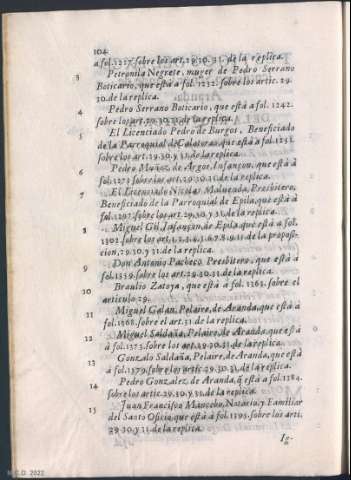 104
a fol.1217.sobre los art.29.30.31. de la replica.
3 Petronila Negrete, muger de Pedro Serrano
Boticario, que està à fol. 1232. sobre los artic. 29.
30. de la replica.
4 Pedro Serrano Boticario, que està à fol. 1242.
sobre los art.29.30.31.de la replica.
5 El Licenciado Pedro de Burgos, Beneficado
de la Parroquial de Calatorao, que està à fol.1251.
sobre los art.29.30.y 31.de la replica.
6 Pedro Muñoz, de Argos, Infançon, que està à
fol.1273 sobre los art.29.30.31.de la replica.
7 El Licenciado Nicolas Maluenda, Presbitero,
Beneficado de la Parroquial de Epila, que està à
fol.1297.sobre los art.29.30.y 31.de la replica.
8 Miguel Gil, Infançon, de Epila que està a fol.
1302.sobre los art.1.2.3.4.5.6.7.8.9.11 de la proposi-
cion, 29.30.y 31.de la replica.
9 Don Antonio Pacheco, Presbitero, que està à
fol.1339.sobre los art.29.30.31.de la replica.
10 Braulio Zatoya, que està à fol. 1363. sobre el
articulo 29.
11 Miguel Galan, Pelaire, de Aranda, que està à
fol.1368. sobre el art.31 de la replica.
12 Miguel Saldaña, Pelaire, de Aranda, que està
à fol.1373. sobre los art.29.30.31. de la replica.
13 Gonzalo Saldaña, Pelaire, de Aranda, que està
à fol.1379.sobre los artic.29.30.31. de la replica.
14 Pedro Gonzalez, de Aranda, q̃ està à fol.1384.
sobre los artic.29.30.y 31.de la replica.
15 Juan Francisco Mancebo, Notario, y Familiar
del Santo Oficio, que està à fol.1395.sobre los artic.
29.30.y 31.de la replica.
Ig-
M.C.D. 2022